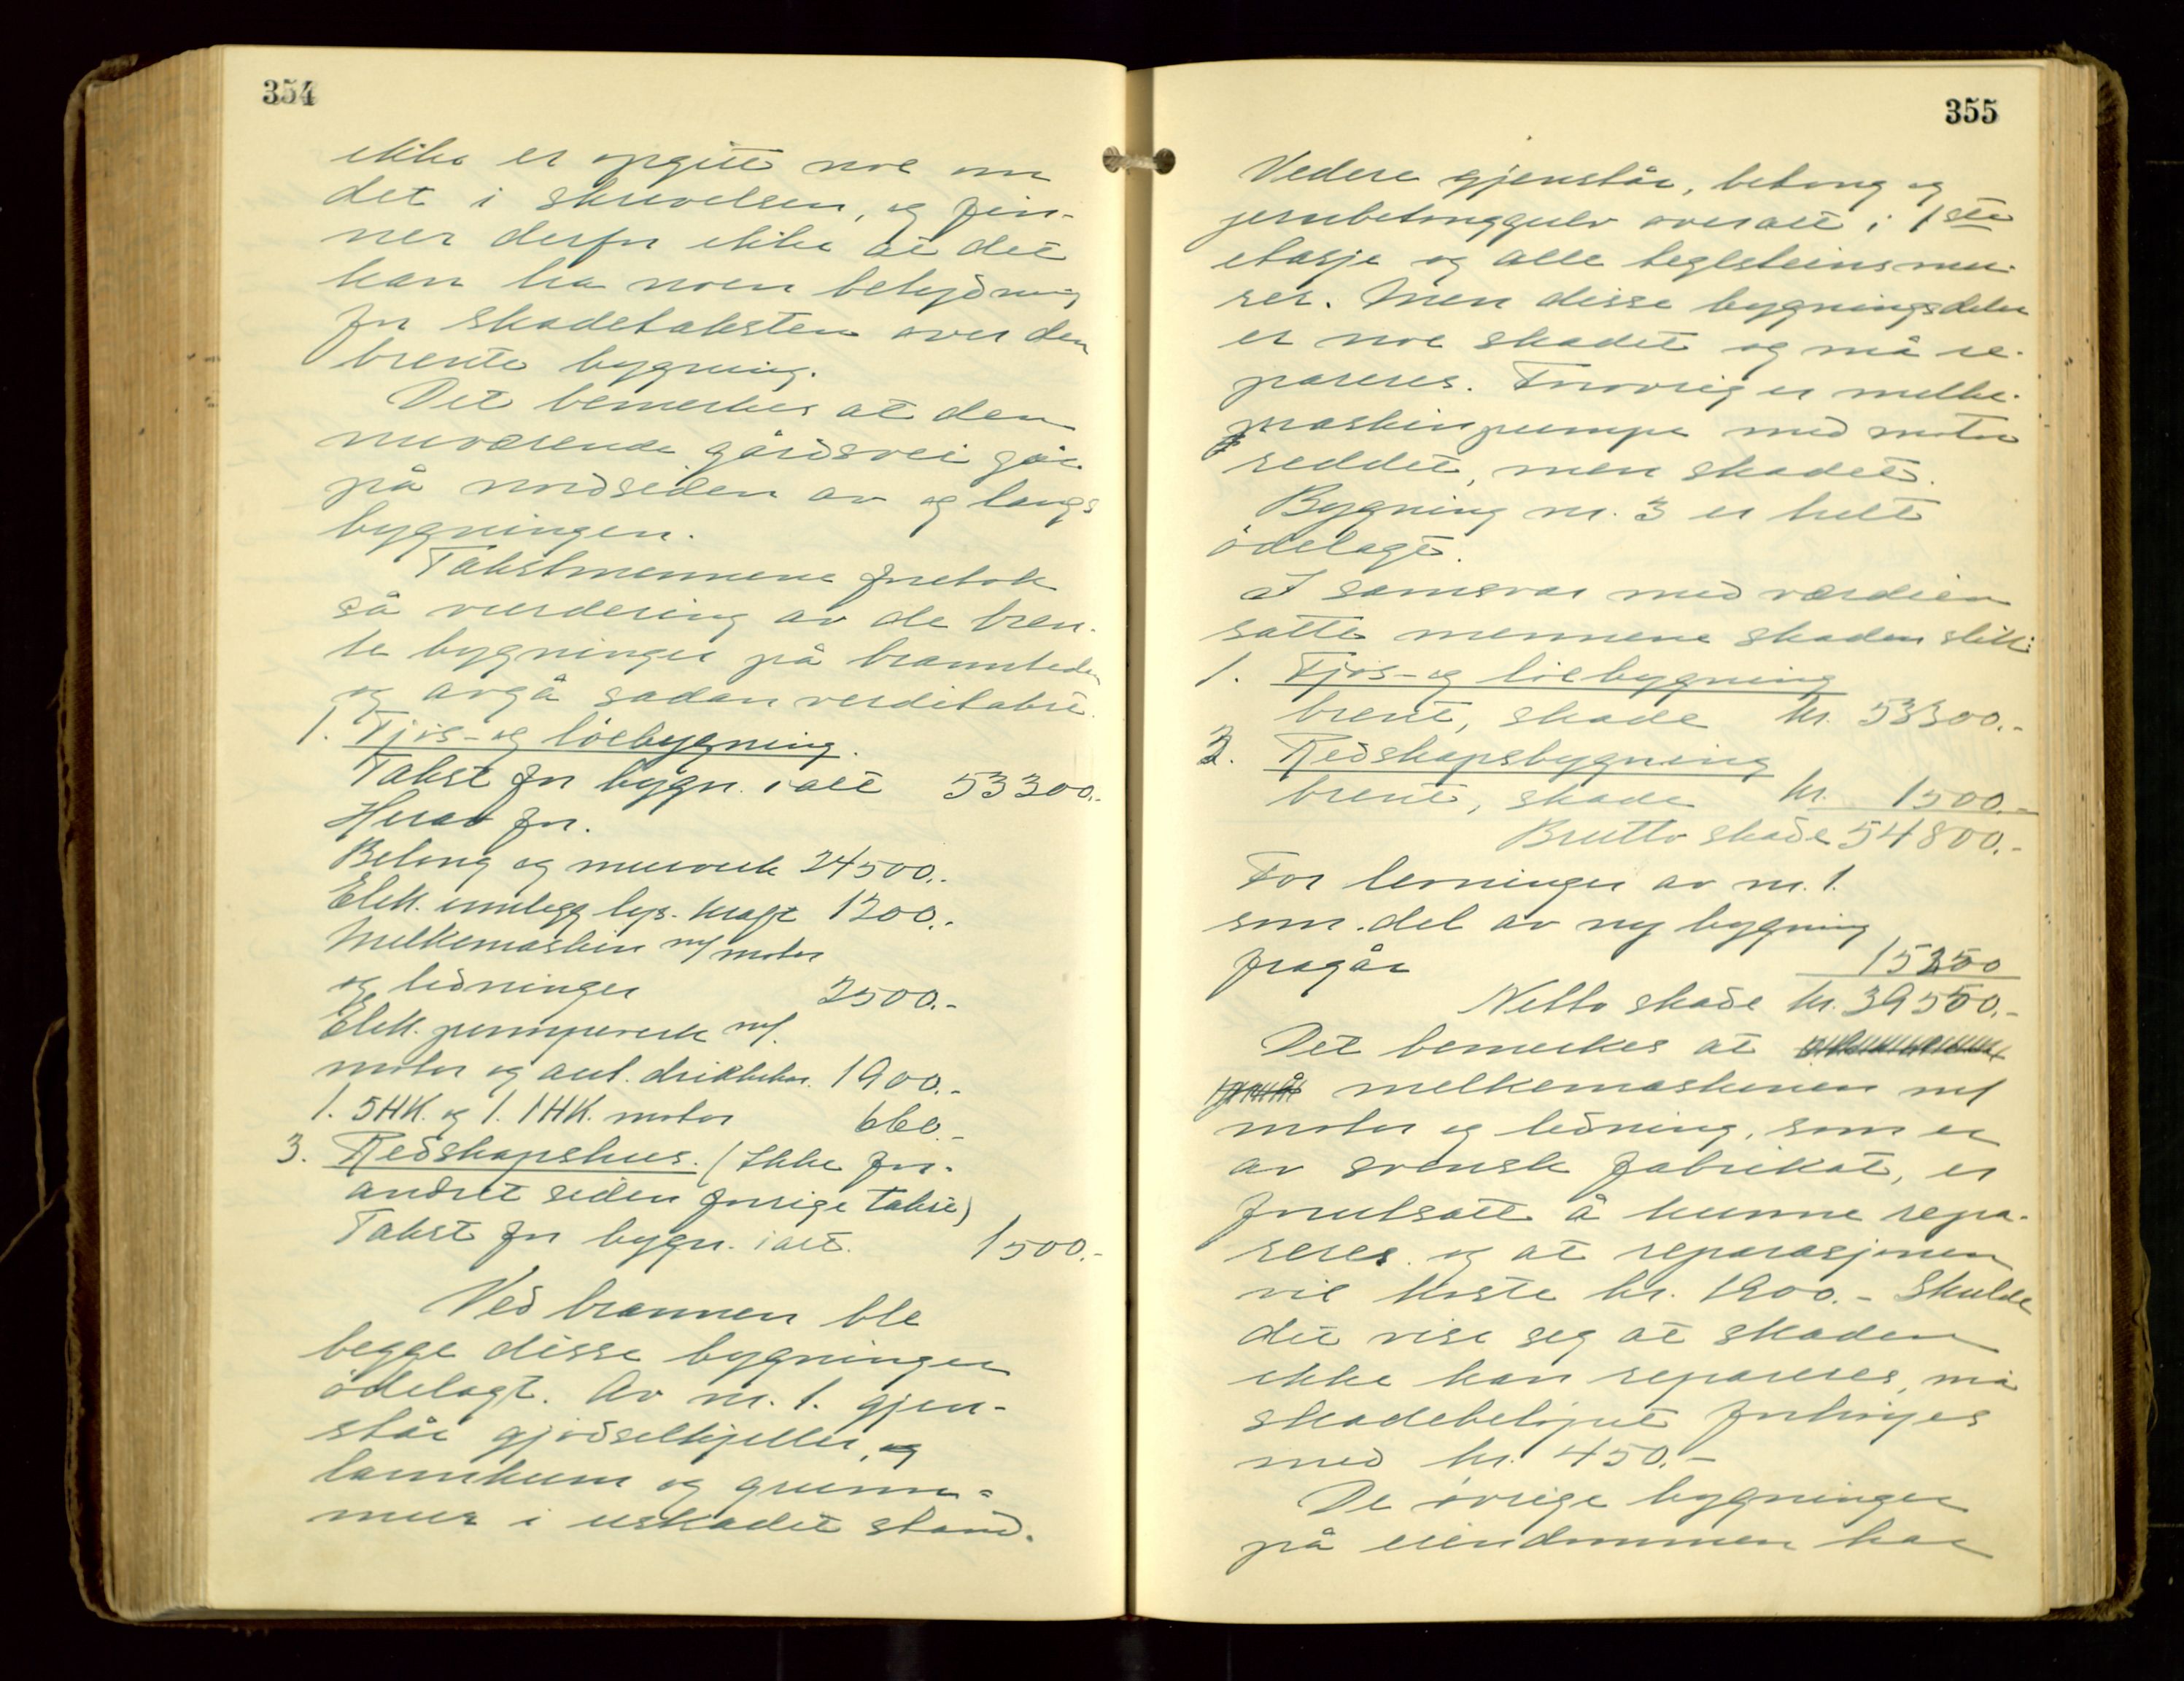 354
ikke er opgitt noe om
det i skrivelsen, og fin-
ner derfor ikke at det
kan ha noen betydning
for skadetaksten over den
brente bygning.
Det bemerkes at den
nuværende gårdsvei går
på nordsiden av og langs
bygningen.
Takstmennene foretok
så vurdering av de bren-
te bygninger på brannsteden
og avga sådan verditakst.
1. Fjøs- og löebygning.
Takst for bygn. ialt 53300.-
Herav for.
Betong og murverk 24500.-
Elek. innlegg lys- kraft 1200.-
Melkemaskin m/ motor
og ledninger 2500.-
Elek. pumpeverk m/.
motor og aut. drikkekar. 1900.-
1. 5HK. og 1. 1HK. motor 660.-
3. Redskapshus. (Ikke for-
andret siden forrige takst)
Takst for bygn. ialt. 1500.-
Ved brannen ble
begge disse bygninger
ödelagt. Av nr. 1. gjen-
står gjødselkjeller, og
lannkum og grunn-
mur i uskadet stand.
355
Videre gjenstår, betong og
jernbetonggulv overalt i 1ste
etasje og alle teglsteinsmu-
rer. Men disse bygningsdeler
er noe skadet og må re-
pareres. Forøvrig er melke-
maskinpumpe med motor
reddet, men skadet.
Bygning nr. 3 er helt
ödelagt.
I samsvar med verdien
satte mennene skaden slik:
1. Fjøs- og löebygning
brent, skade kr. 53300.-
3. Redskapsbygning
brent, skade kr. 1500.-
Brutto skade 54800.-
For levninger av nr. 1.
som del av ny bygning
fragår 15250
Netto skade kr. 39550.-
Det bemerkes at
melkemaskinen m/
motor og ledning, som er
av svensk fabrikat, er
forutsatt å kunne repa-
reres og at reparasjonen
vil koste kr. 1900.- Skulde
det vise seg at skaden
ikke kan repareres, må
skadebeløpet forhøyes
med kr. 450.-
De øvrige bygninger
på eiendommen har